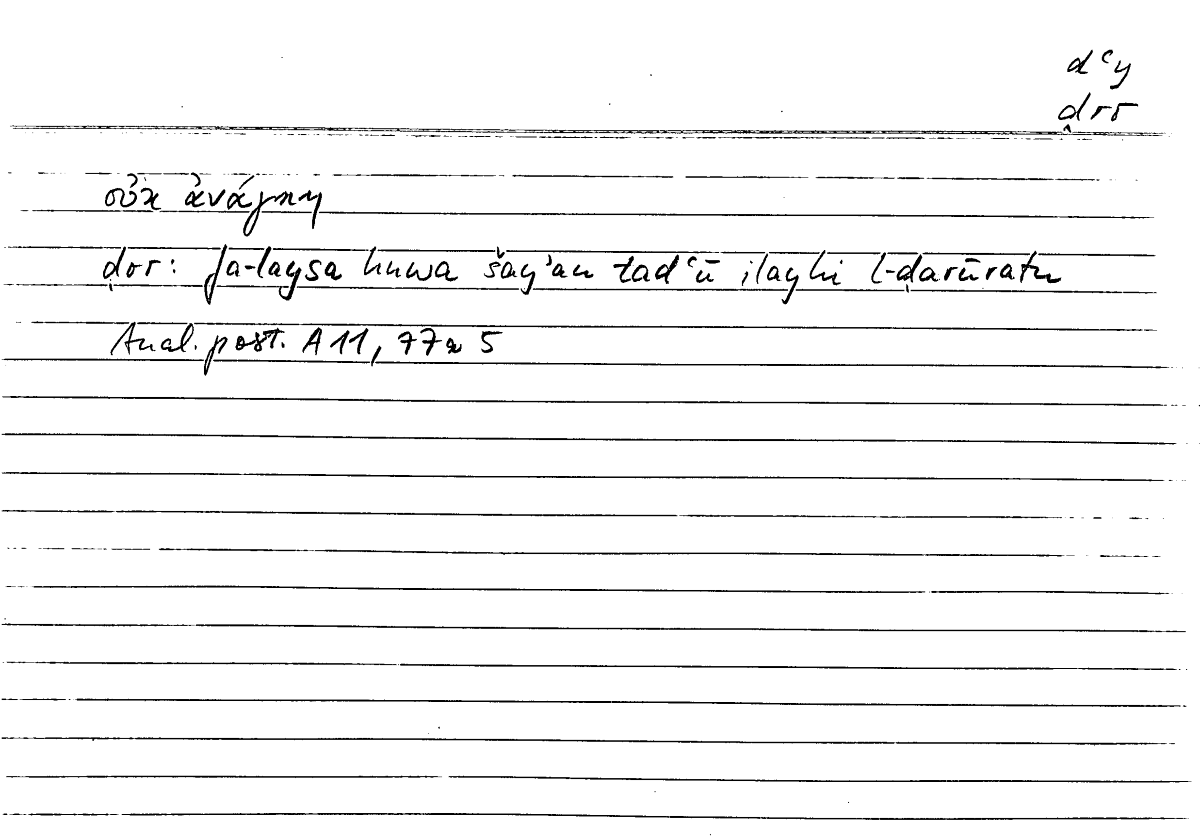 dʿy
ḍrr
οὐκ ἀνάγκη
ḍrr: fa-laysa huwa šayʾan tadʿū ilayhi l-ḍarūratu
Anal. post. A 11, 77a 5